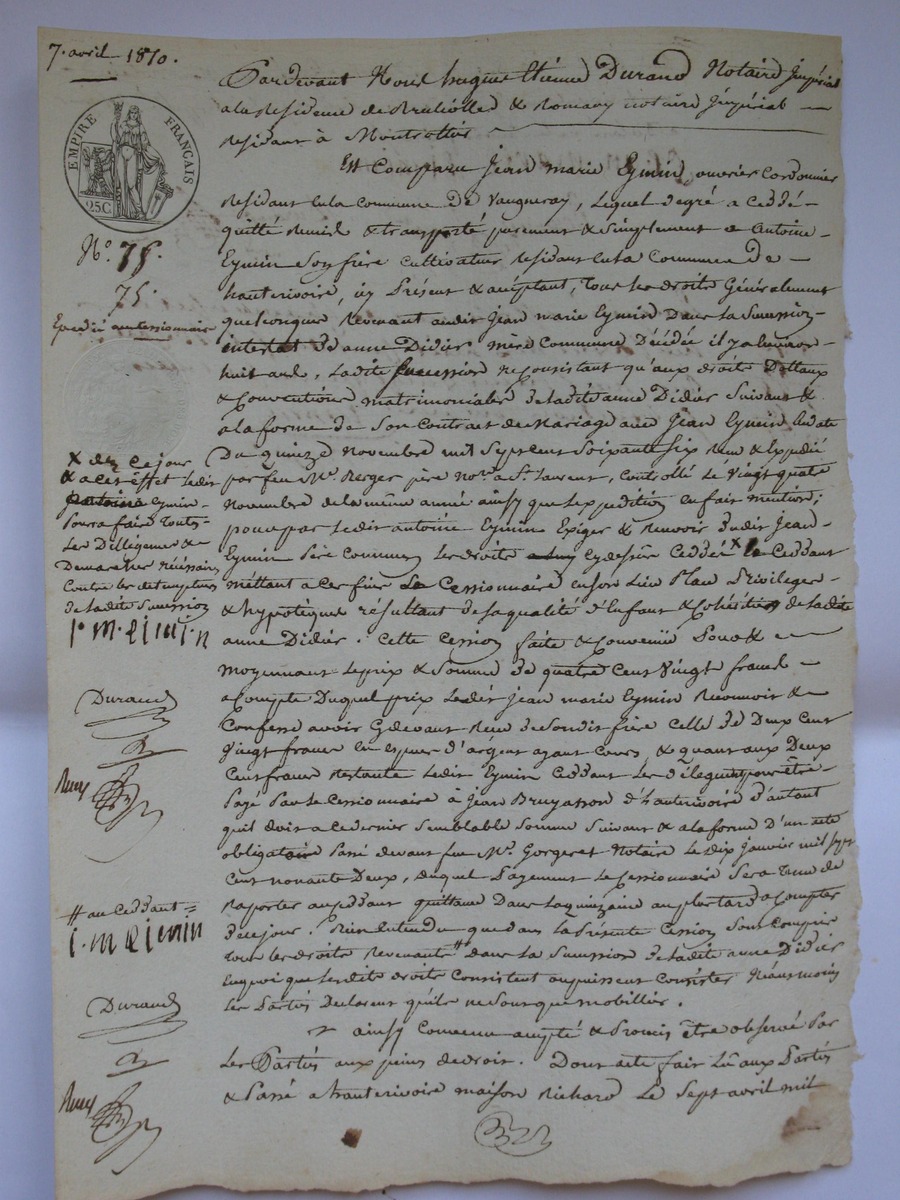 7. avril 1810.
EMPIRE FRANÇAIS
25C
N°. 75.
75.
Expedié au cessionnaire
Pardevant Nous hugue Etienne Durand Notaire Impérial
a la Residence de Brulliolles & Romany notaire Impérial
Residant à Montrottier
Est Comparu Jean marie Eymin, ouvrier Cordonnier
Residant en la Commune De Vaugneray, Lequel de gré a Ceddé
quitté Remis & transporté purement & Simplement a Antoine
Eymin Son frère Cultivateur residant en la Commune De
hauterivoire, icy Présent & acceptant, Tous les droits Généralement
quelconques Revenant audit Jean marie Eymin Dans la Succession
intestat de anne Didier mere Commune Décédée il y a environ
huit ans, Ladite Succession ne Consistant qu'aux droits Dottaux
& Conventions matrimoniales de ladite anne Didier Suivant &
a la forme de Son Contrat de Mariage avec Jean Eymin En date
Du quinze Novembre mil Sept cent Soixante Six Reçu & Expedié
par feu Me. Berger père nore. a St. Laurent, Controllé Le Vingt quatre
Novembre de la même année ainsy que Lexpedition En fait mention;
pour par Ledit antoine Eymin Exiger & Recevoir dudit Jean
Eymin Père Commun Les droits Cydessus Ceddés x le Ceddant
mettant a Ces fins Le Cessionnaire en son Lieu Place Privileges
& hypotèques résultant de sa qualité d'Enfant & Cohéritier de ladite
anne Didier. Cette Cession faite & Convenüe Sous &
moyennant Le prix & Somme de quatre Cent Vingt francs
a Compte Duquel prix Ledit Jean marie Eymin Reconnoit &
Confesse avoir Cydevant Reçu de Sondit frère Celle de Deux Cent
Vingt francs En espèces d'argent ayant Cours, & quant aux Deux
Cent francs Restants Ledit Eymin Ceddant Les délegue pour être
Payé Par Le Cessionnaire à Jean Bruyasson d'hauterivoire d'autant
quil doit a Ce dernier Semblable Somme Suivant & a la forme D'un acte
obligatoire Passé devant feu Me. Gorgeret Notaire Le Dix Janvier mil Sept
Cent Nonante Deux, duquel Payement Le Cessionnaire Sera Tenu de
Raporter au Ceddant quittance Dans La quinzaine au plus tard a Compter
de ce jour. Bien Entendu que dans La Présente Cession Sont Compris
Tous les droits Revenants # dans La Succession de ladite anne Didier
En quoi que Lesdits droits Consistent ou puissent Consister Néanmoins
Les Parties Declarent qu'ils ne Sont que mobilliers.
ainsy Convenu accepté & Promis être observé Par
Les Parties aux peines de droit. Dont acte fait Lû aux Parties
& Passé a hauterivoire maison Richard Le Sept avril mil
x dez ce jour
& a cet effet Ledit
antoine Eymin
Pourra faire Toutes
Les Dilligences &
Demarches nécessaires
Contre les detempteurs
de la dite Succession
J. m. eimin
Durand
Rmy
# au Ceddant =
J. m eimin
Durand
Rmy